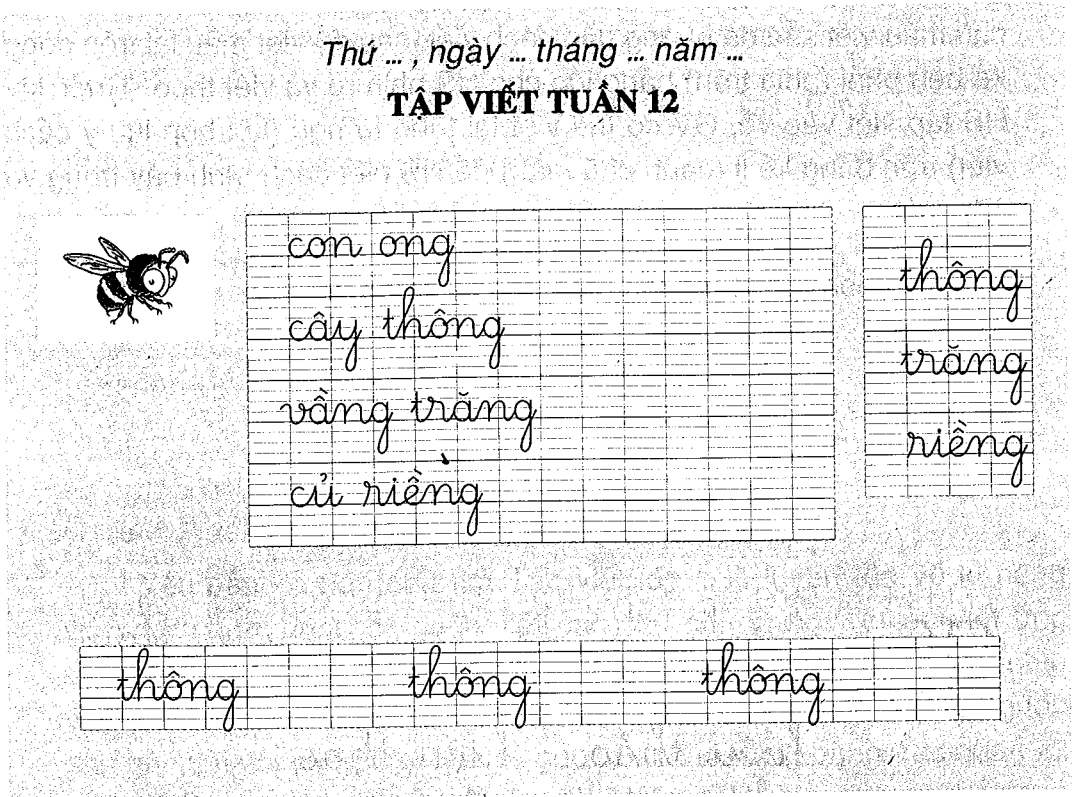 Thứ ... , ngày ... tháng ... năm ...
TẬP VIẾT TUẦN 12
con ong
cây thông
vầng trăng
củ riềng
thông
trăng
riềng
thông thông thông